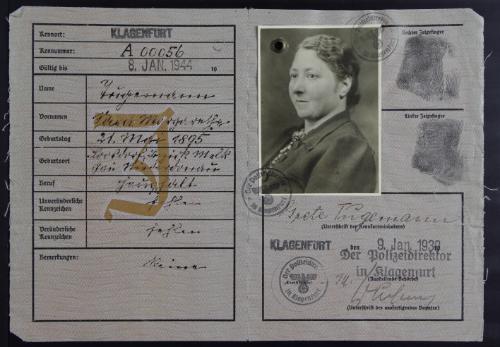 Kennort: KLAGENFURT
Kennummer: A 00056
Gültig bis 8. JAN. 1944 19
Name
Vornamen Sara Margarethe
Geburtstag 21. Mai 1895
Geburtsort
Beruf Haushalt
Unveränderliche
Kennzeichen fehlen
Veränderliche
Kennzeichen fehlen
Bemerkungen: Keine
J
Rechter Zeigefinger
Linker Zeigefinger
Grete
(Unterschrift des Kennkarteninhabers)
KLAGENFURT den 9. Jan. 1939
Der Polizeidirektor
in Klagenfurt
(Ausstellende Behörde)
(Unterschrift des ausfertigenden Beamten)
Der Polizeidirektor
in Klagenfurt